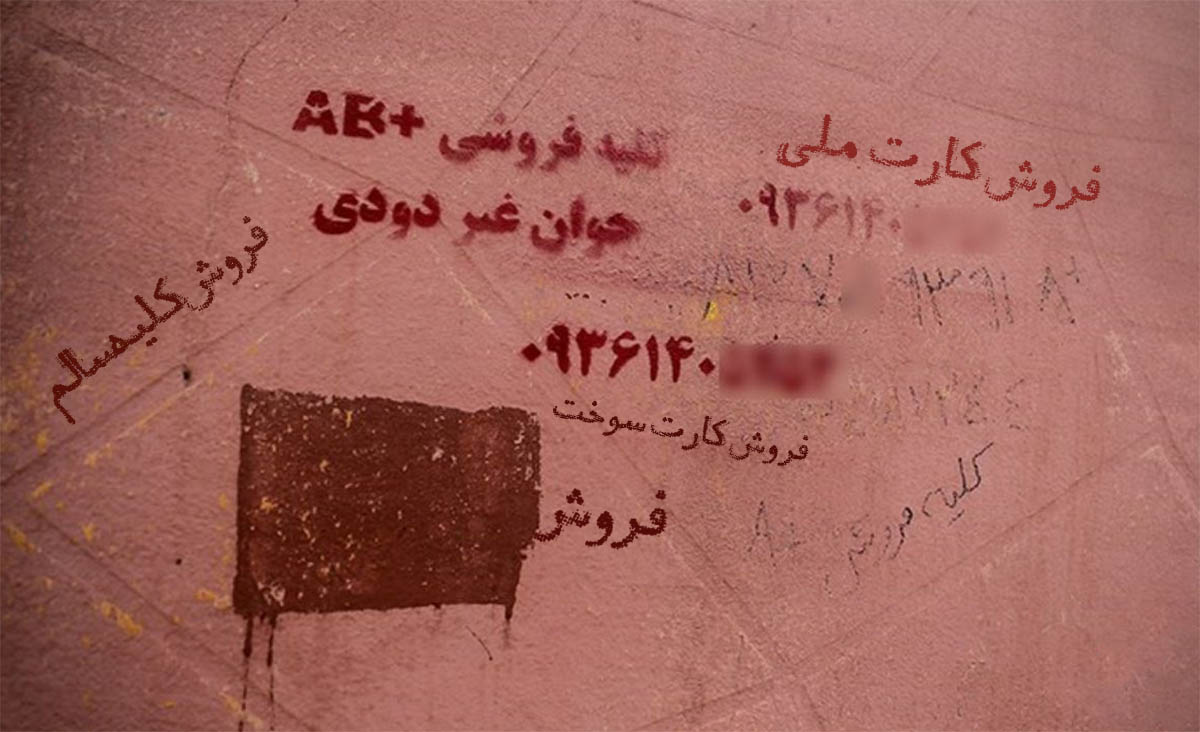 کلیه فروشی AB+
جوان غیر دودی
۰۹۳۶۱۴۰
فروش کارت ملی
۰۹۳۶۱۴۰
فروش کلیه سالم
فروش کارت سوخت
فروش
کلیه فروشی A+